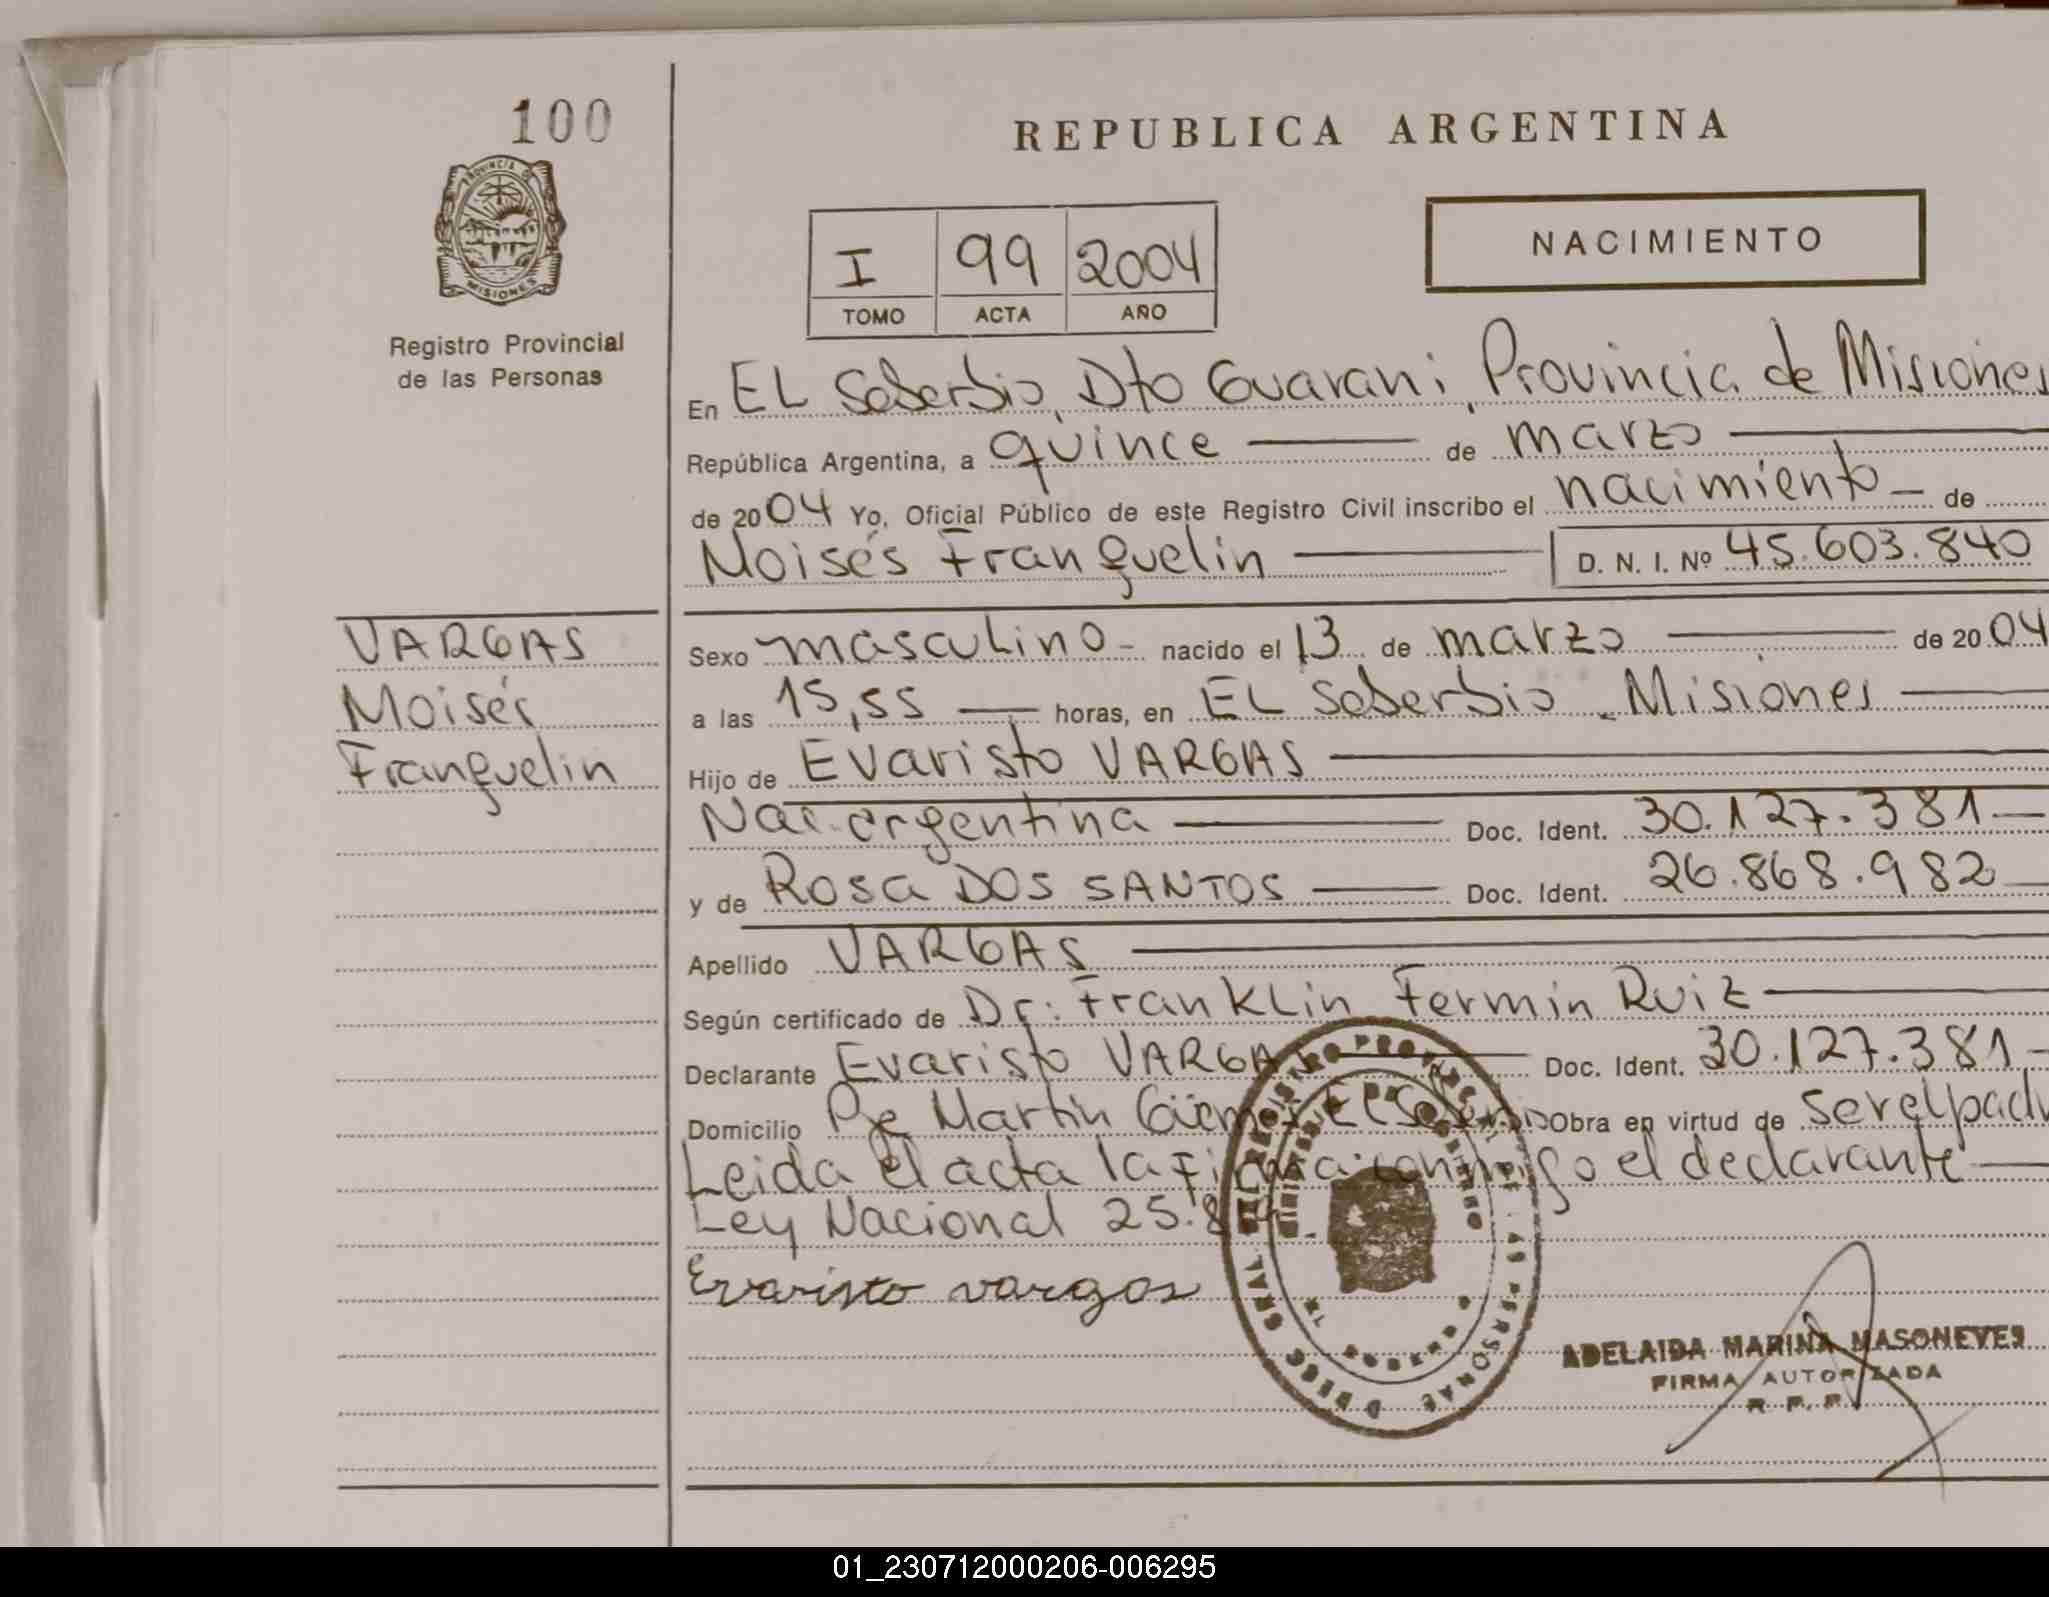 100
PROVINCIA DE
MISIONES
Registro Provincial
de las Personas
REPUBLICA ARGENTINA
I 99 2004
TOMO ACTA AÑO
NACIMIENTO
En EL Soberbio, Dto Guarani, Provincia de Misiones
República Argentina, a quince de marzo
de 2004 Yo, Oficial Público de este Registro Civil inscribo el nacimiento de
Moisés Franquelin D. N. I. Nº 45.603.840
VARGAS
Moisés
Franquelin
Sexo masculino nacido el 13 de marzo de 2004
a las 15,55 horas, en EL Soberbio Misiones
Hijo de Evaristo VARGAS
Nac. argentina Doc. Ident. 30.127.381
y de Rosa DOS SANTOS Doc. Ident. 26.868.982
Apellido VARGAS
Según certificado de Dr: Franklin Fermin Ruiz
Declarante Evaristo VARGAS Doc. Ident. 30.127.381
Domicilio Pje Martin Güemes El Soberbio Obra en virtud de ser el padr
Leida el acta la firma conmigo el declarante
Ley Nacional
Evaristo vargas
ADELAIDA MARINA MASONEVES
FIRMA AUTORIZADA
R. P. P.
01_230712000206-006295